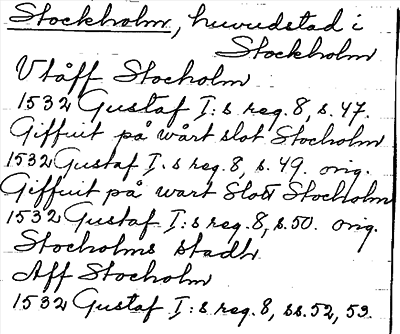 Stockholm, huvudstad i
Stockholm
Vtåff Stocholm
1532 Gustaf I:s reg. 8, s. 47.
Giffuit på wårt slot Stocholm
1532 Gustaf I:s reg. 8, s. 49. orig.
Giffuit på wart Slott Stockholm
1532 Gustaf I:s reg. 8, s. 50. orig.
Stocholms stadh
Aff Stocholm
1532 Gustaf I:s reg. 8, ss. 52, 53.